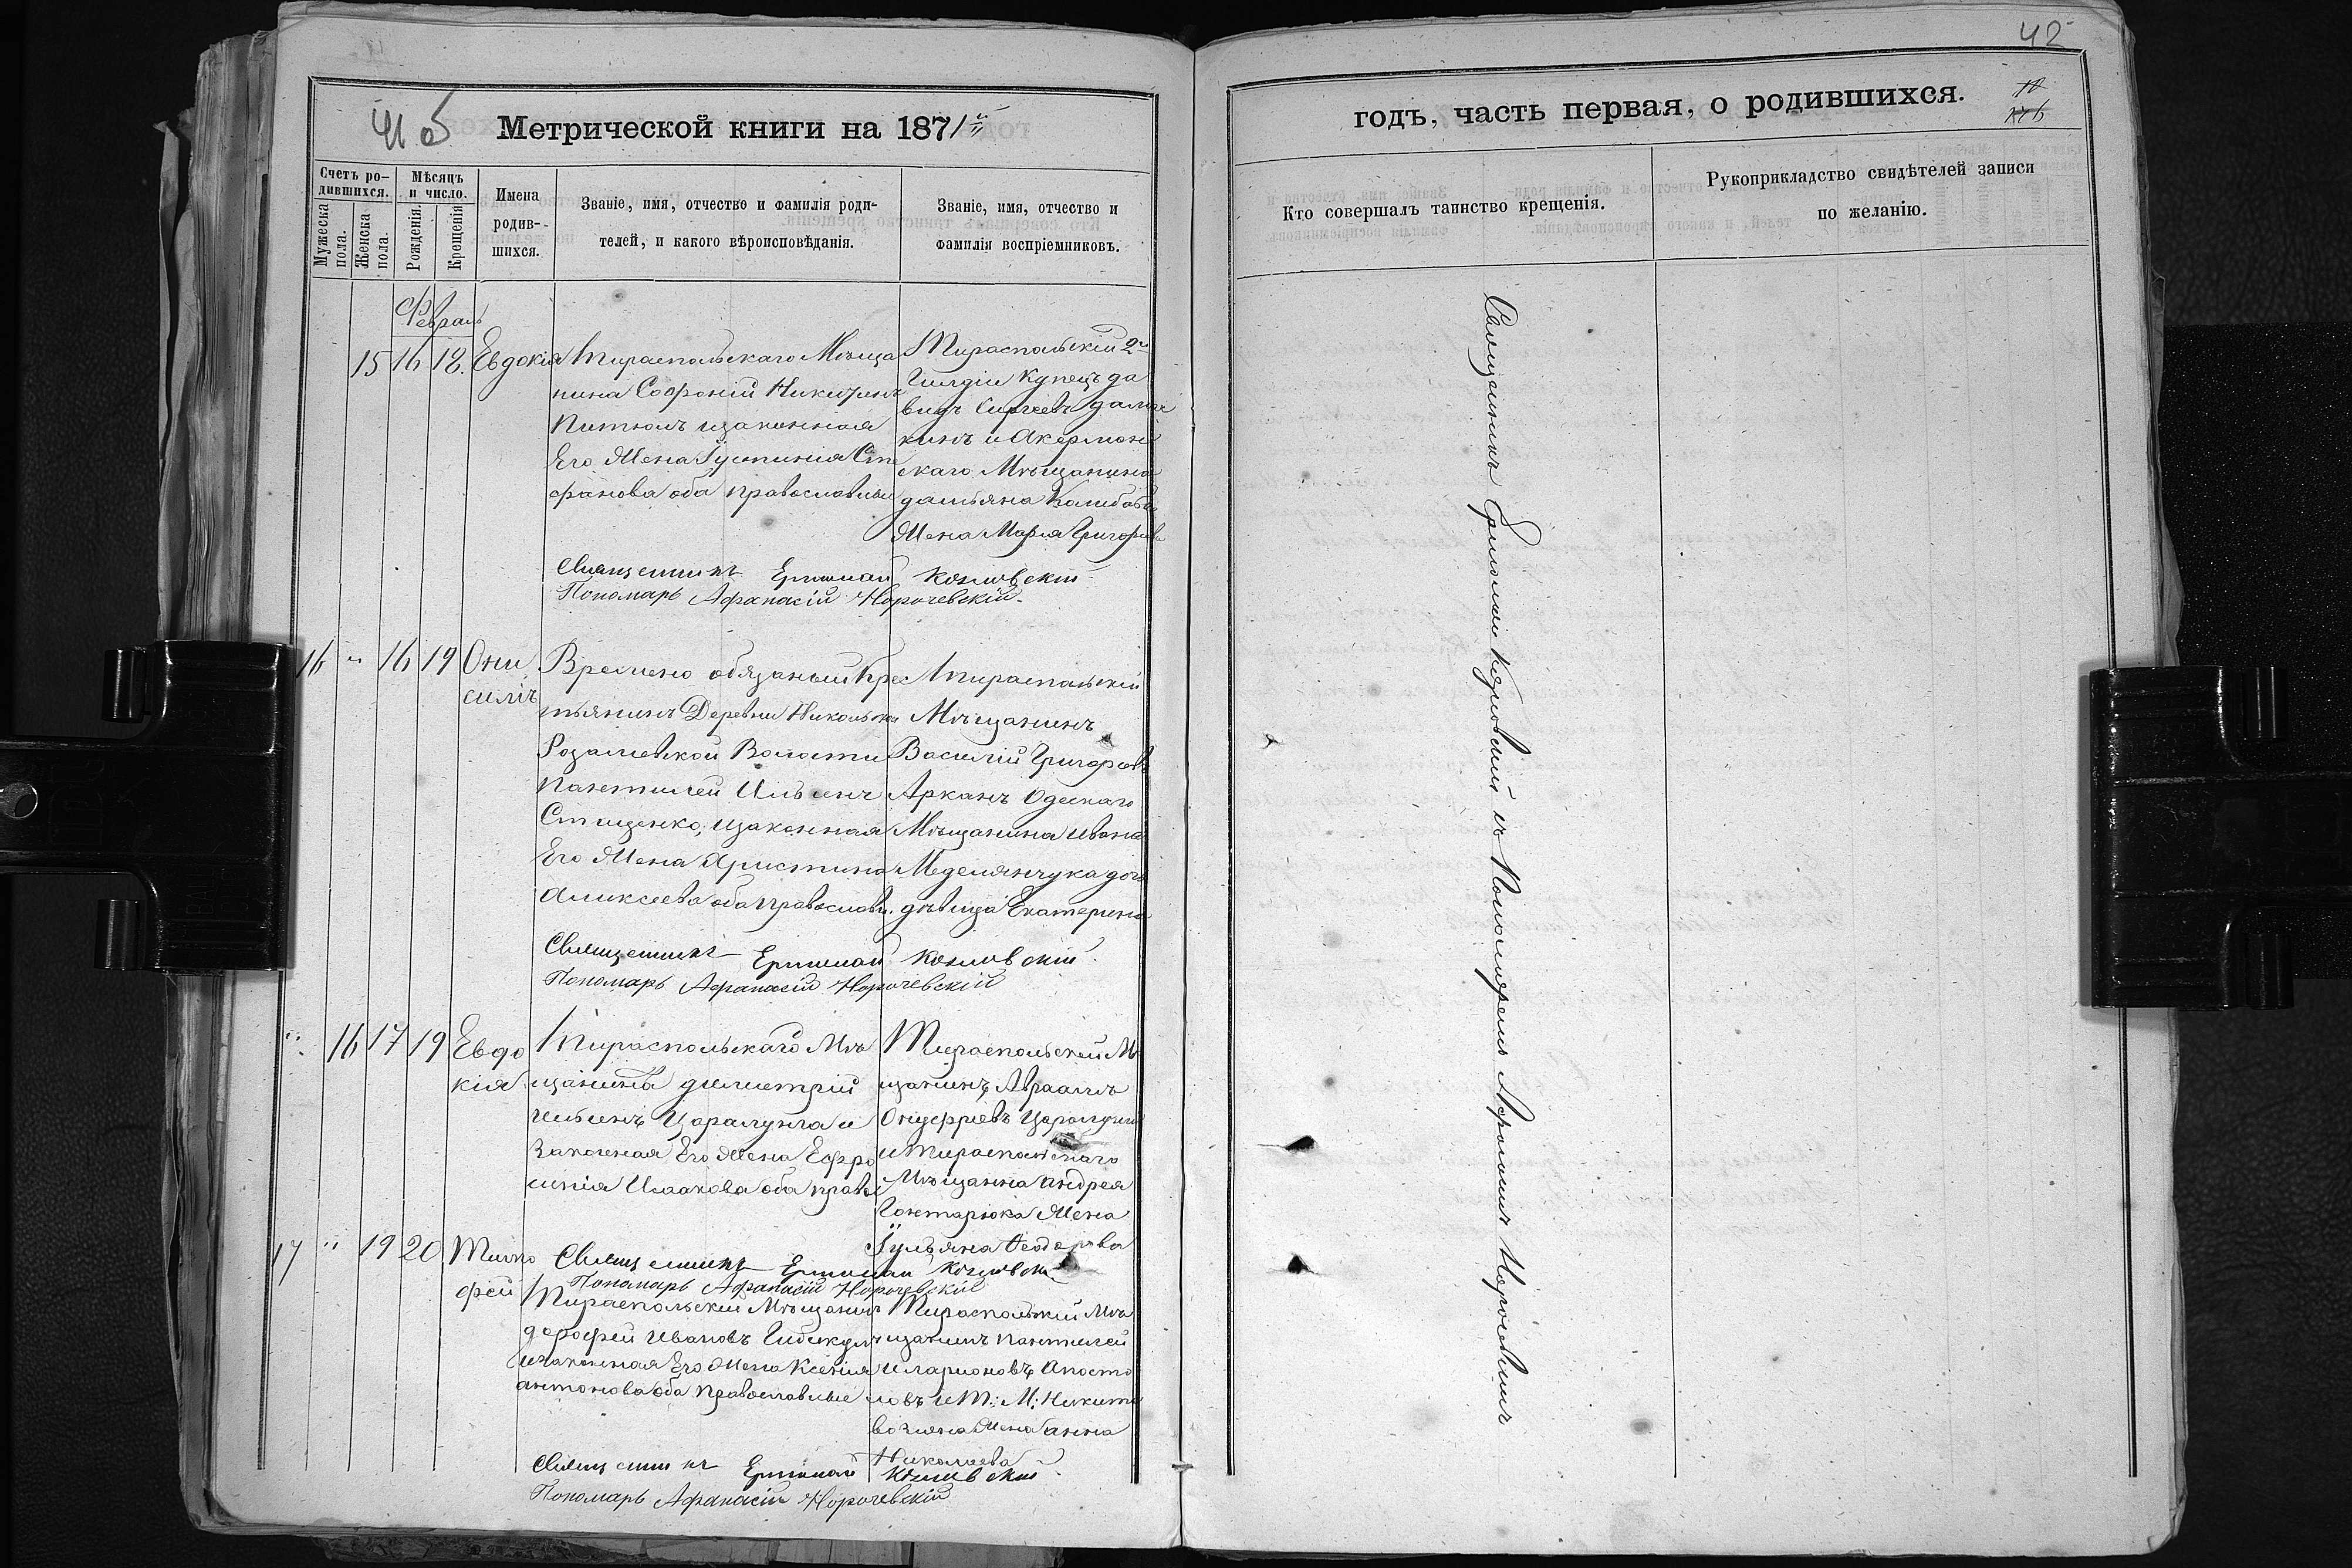 41 об
Метрической книги на 1871й
Счетъ родившихся.
Мѣсяцъ и число.
Мужеска пола.
Женска пола.
Рожденія
Крещенія
Имена родившихся.
Званіе, имя, отчество и фамилія роди-
телей, и какого вѣроисповѣданія.
Званіе, имя, отчество и
фамилія воспріемниковъ.
Февраль
15 16 18. Евдокія
Тираспольскаго Мѣща
нина Софроній Никитинъ
изаконная
Его Жена Іустинія Сте
фанова оба православные
Тираспольскій 2й
Гилдіи Купецъ да
видъ Сергеевъ
и Акермон
скаго Мѣщанина
дамьяна
Жена Мария Григорьева
Священникъ Ермолай Козловскій
Пономарь Афанасій Норочевскій
16 " 16 19 Они
симъ
Времено обязаный Крес
тьянинъ Деревни Никольски
Волости
Пантилей Ильинъ
Стаценко, изаконная
Его Жена Христина
Аликсеева оба православ.
Тираспольскій
Мѣщанинъ
Василій Григорьевъ
Арканъ Одескаго
Мѣщанина Ивана
дочь
дѣвица Екатерина
Священникъ Ермолай Козловскій
Пономарь Афанасій Норочевскій
" 16 17 19 Евдо
кія
Тираспольскаго Мѣ
щанина димитрій
Ильинъ Царалунга и
Законная Его Жена Ефро
синія Исаакова оба правос
Тираспольскій Мѣ
щанинъ Авраамъ
Онуфріевъ Царалунга
и Тираспольскаго
Мѣщанина Андрея
Гонтарюка Жена
Іульяна Феодорова
Священникъ Ермолай Козловскій
Пономарь Афанасій Норочевскій
17 " 19 20 Тимо
фей
Тираспольскій Мѣщанинъ
дорофей Ивановъ
изаконная Его Жена Ксенія
антонова оба Православные
Тираспольскій Мѣ
щанинъ Пантилей
Иларионовъ Апосто
ловъ и Т: М: Никиты
Жена анна
Николаева
Священникъ Ермолай Козловскій
Пономарь Афанасій Норочевскій
42
годъ, часть первая, о родившихся.
Кто совершалъ таинство крещенія.
Рукоприкладство свидѣтелей записи
по желанію.
Священникъ Ермолай Козловскій съ Пономаремъ Афанасіемъ Норочевскимъ